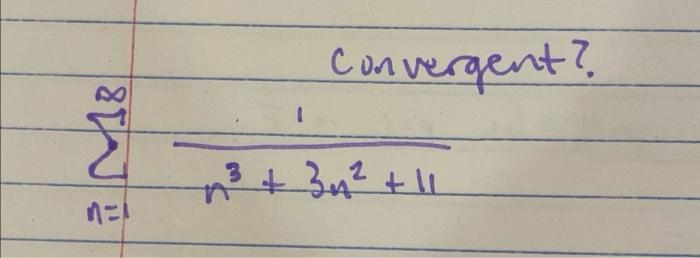 Convergent?
∞
Σ 1
n³ + 3n² + 11
n=1